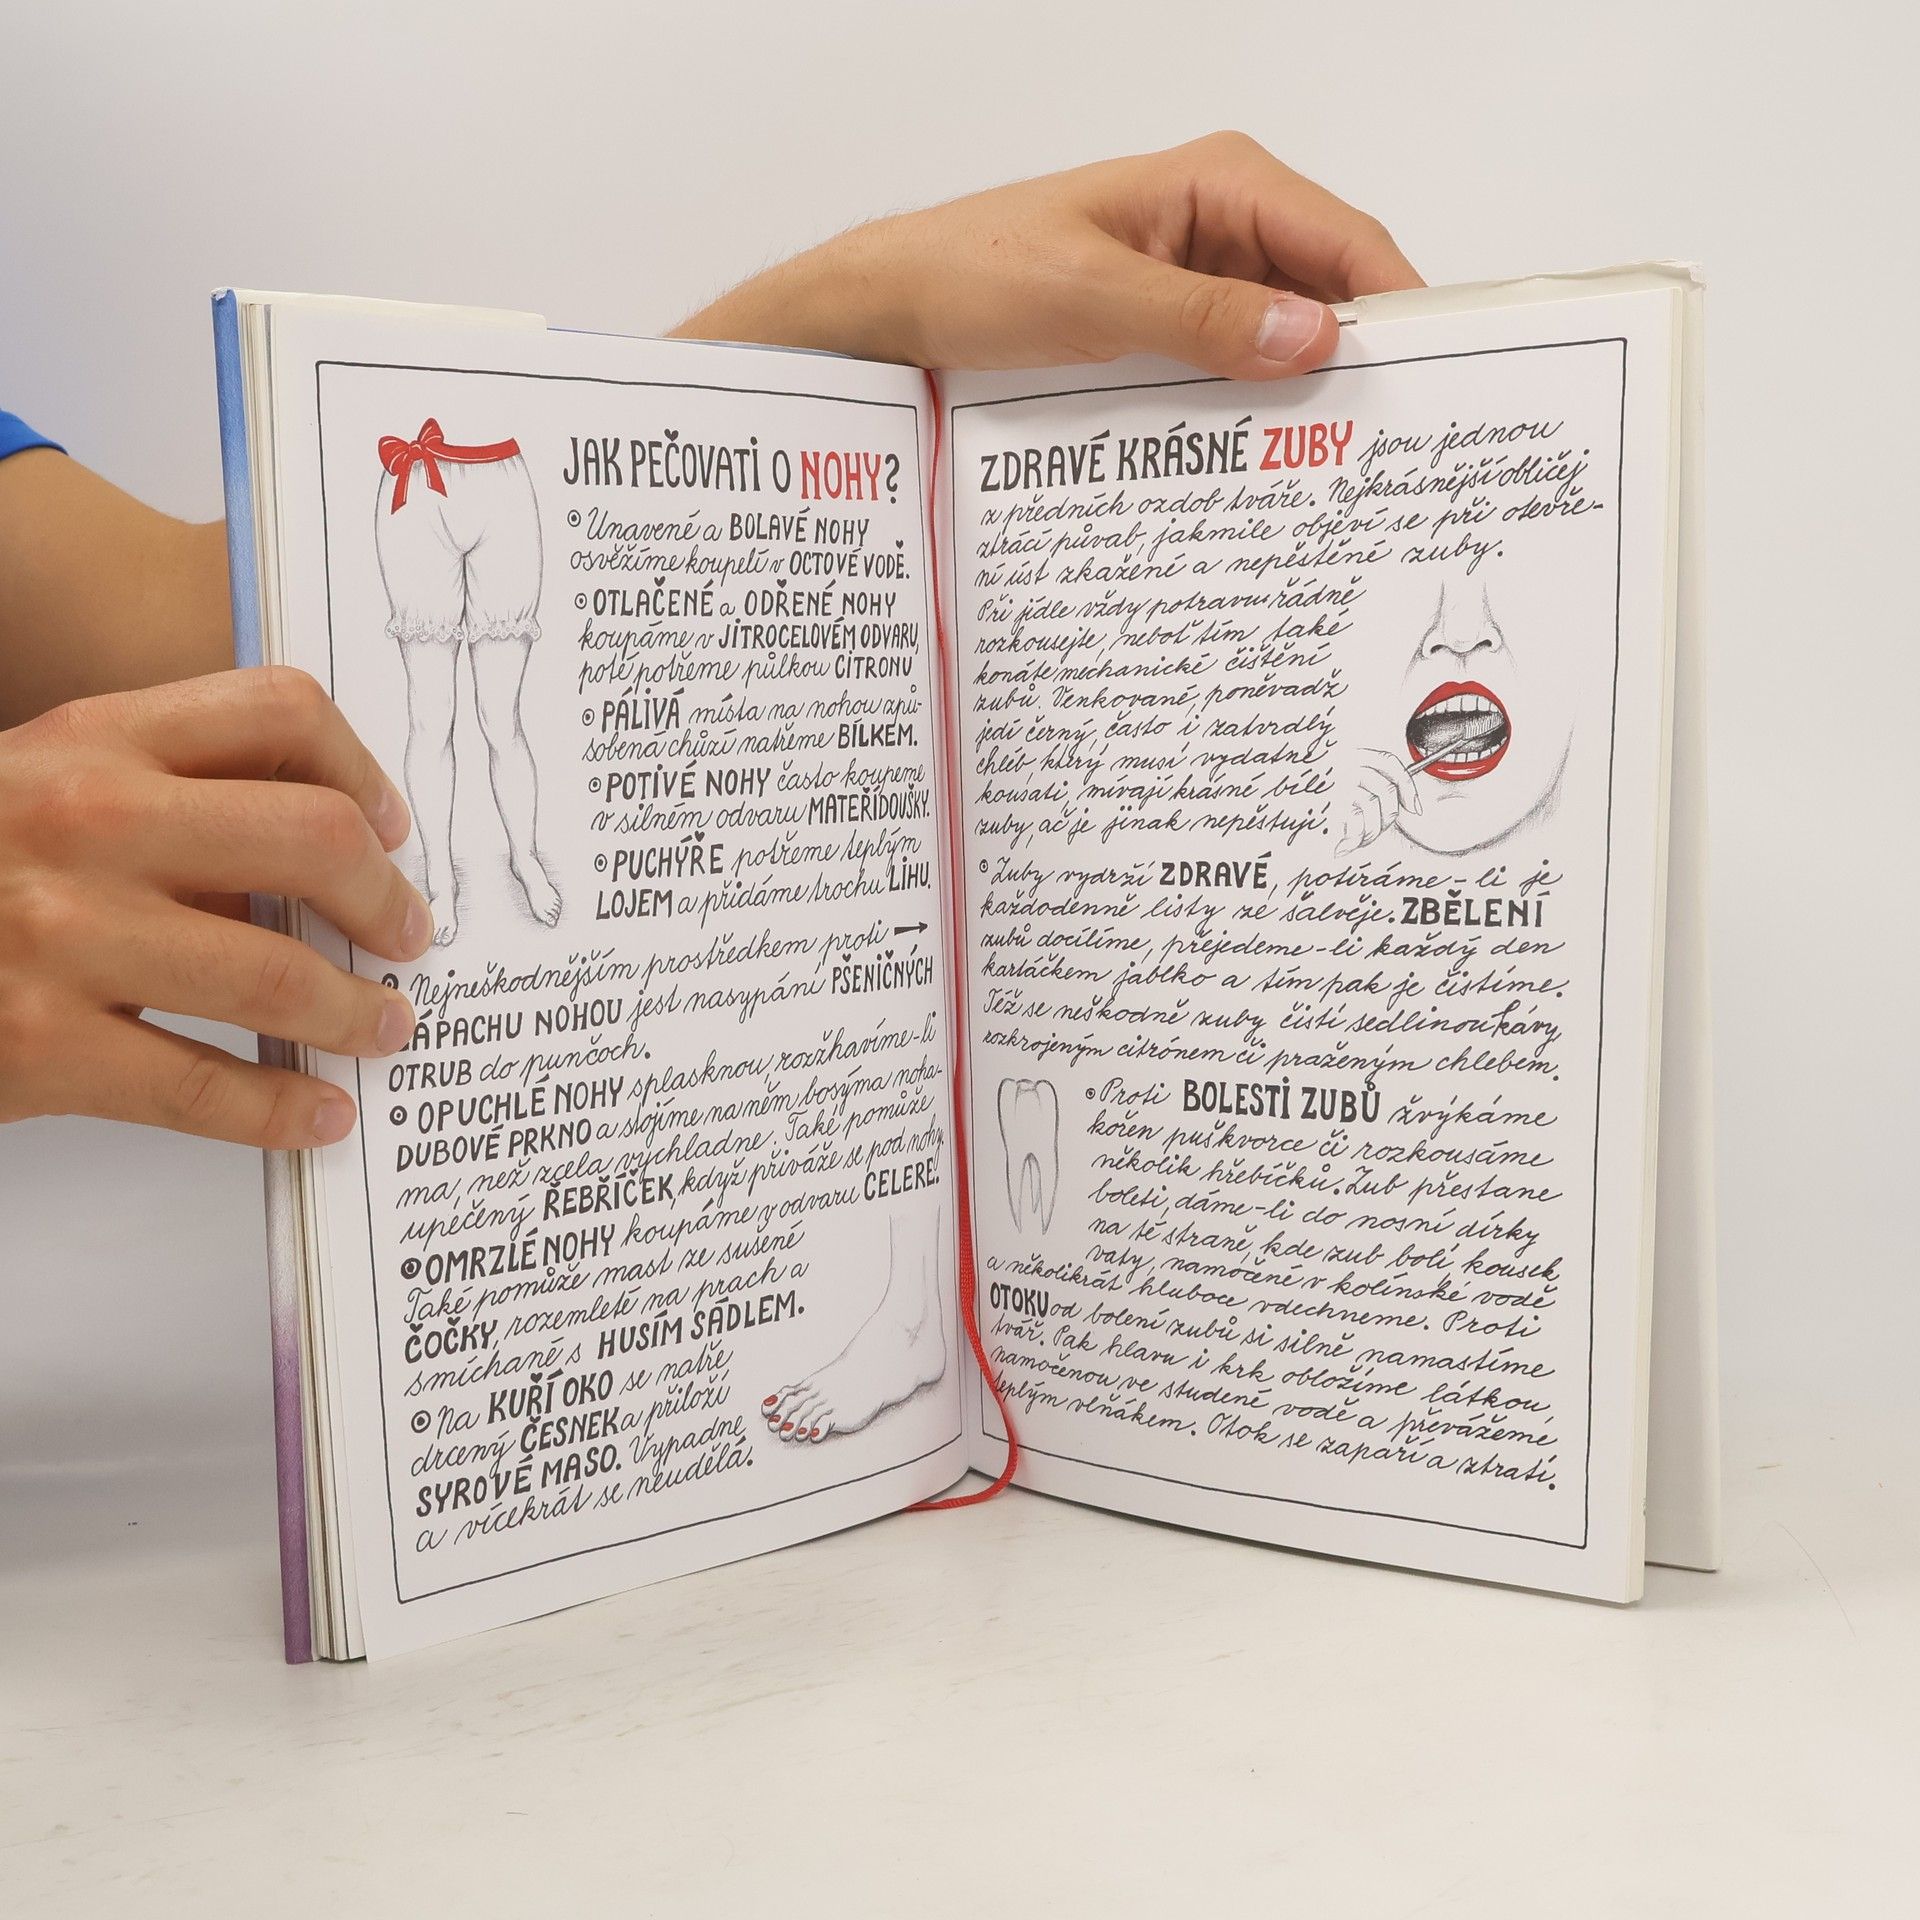 JAK PEČOVATI O NOHY?
Unavené a BOLAVÉ NOHY
osvěžíme koupelí v OCTOVÉ VODĚ.
OTLAČENÉ a ODŘENÉ NOHY
koupáme v JITROCELOVÉM ODVARU,
poté potřeme půlkou CITRONU
PÁLIVÁ místa na nohou způ-
sobená chůzí natřeme BÍLKEM.
POTIVÉ NOHY často koupeme
v silném odvaru MATEŘÍDOUŠKY.
PUCHÝŘE potřeme teplým
LOJEM a přidáme trochu LIHU.
Nejneškodnějším prostředkem proti →
ZÁPACHU NOHOU jest nasypání PŠENIČNÝCH
OTRUB do punčoch.
OPUCHLÉ NOHY splasknou, rozžhavíme-li
DUBOVÉ PRKNO a stojíme na něm bosýma noha-
ma, než zcela vychladne. Také pomůže
upečený ŘEBŘÍČEK, když přiváže se pod nohy.
OMRZLÉ NOHY koupáme v odvaru CELERE.
Také pomůže mast ze sušené
ČOČKY, rozemleté na prach a
smíchané s HUSÍM SÁDLEM.
Na KUŘÍ OKO se natře
drcený ČESNEK a přiloží
SYROVÉ MASO. Vypadne
a vícekrát se neudělá.
ZDRAVÉ KRÁSNÉ ZUBY jsou jednou
z předních ozdob tváře. Nejkrásnější obličej
ztrácí půvab, jakmile objeví se při otevře-
ní úst zkažené a nepěstěné zuby.
Při jídle vždy potravu řádně
rozkousejte, neboť tím také
konáte mechanické čištění
zubů. Venkované, poněvadž
jedí černý, často i zatvrdlý
chléb, který musí vydatně
kousati, mívají krásné bílé
zuby, ač je jinak nepěstují.
Zuby vydrží ZDRAVÉ, potíráme-li je
každodenně listy ze šalvěje. ZBĚLENÍ
zubů docílíme, přejedeme-li každý den
kartáčkem jablko a tím pak je čistíme.
Též se neškodně zuby čistí sedlinou kávy,
rozkrojeným citrónem či praženým chlebem.
Proti BOLESTI ZUBŮ žvýkáme
kořen puškvorce či rozkousáme
několik hřebíčků. Zub přestane
boleti, dáme-li do nosní dírky
na té straně, kde zub bolí, kousek
vaty, namočené v kolínské vodě
a několikrát hluboce vdechneme. Proti
OTOKU od bolení zubů si silně namastíme
tvář. Pak hlavu i krk obložíme látkou,
namočenou ve studené vodě a převážeme
teplým vlňákem. Otok se zapaří a ztratí.